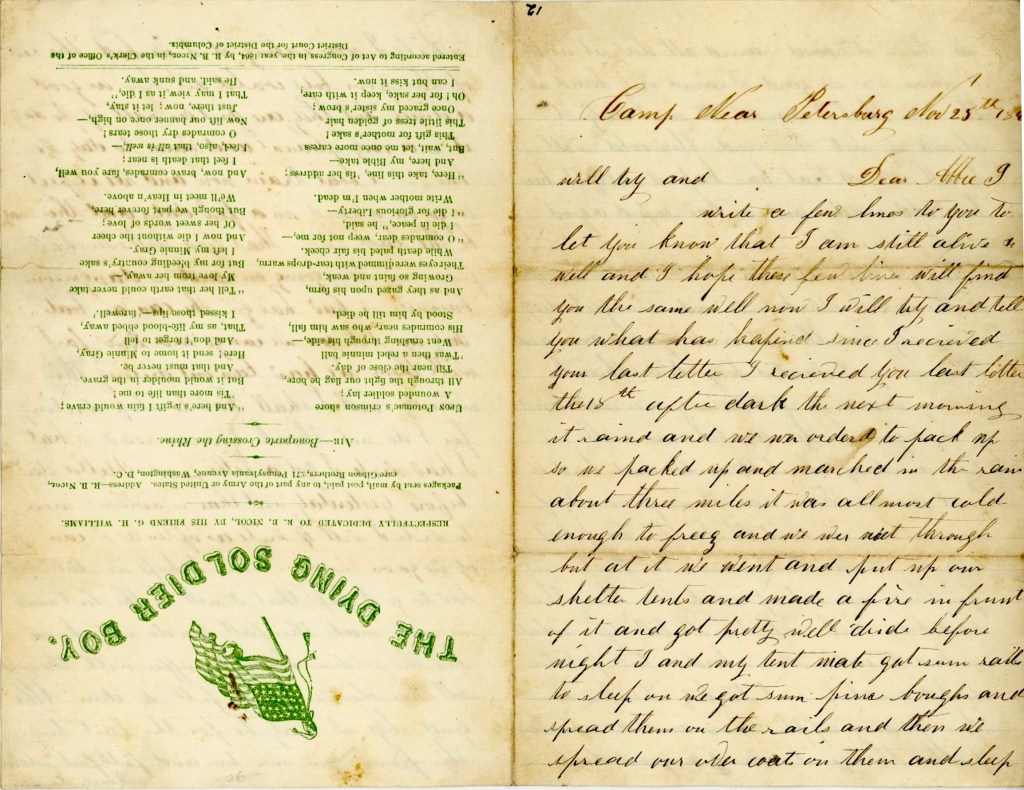 THE DYING SOLDIER BOY.
RESPECTFULLY DEDICATED TO R. B. NICOL, BY HIS FRIEND G. H. WILLIAMS.
Packages sent by mail, post paid, to any part of the Army or United States. Address—R. B. NICOL,
care Gibson Brothers, 271 Pennsylvania Avenue, Washington, D. C.
AIR—Bonaparte Crossing the Rhine.
UPON Potomac's crimson shore
A wounded soldier lay;
All through the fight our flag he bore,
'Till near the close of day.
'Twas then a rebel minnie ball
Went crashing through his side,—
His comrades near, who saw him fall,
Stood by him till he died.
And as they gazed upon his form,
Growing so faint and weak,
Their eyes were dimmed with tear-drops warm,
While death paled his fair cheek.
"O comrades dear, weep not for me,—
I die in peace," he said,
"I die for glorious Liberty—
Write mother when I'm dead.
"Here, take this line, 'tis her address;
And here, my Bible take—
But, wait, let me once more caress
This gift for mother's sake!
This little tress of golden hair
Once graced my sister's brow;
Oh! for her sake, keep it with care,
I can but kiss it now.
"And here's a gift I fain would crave;
'Tis more than life to me!
But it would moulder in the grave,
And that must never be.
Here! send it home to Minnie Gray,
And don't forget to tell
That, as my life-blood ebbed away,
I kissed those lips—farewell.
"Tell her that earth could never take
My love from her away,—
But for my bleeding country's sake
I left my Minnie Gray.
And now I die without the cheer
Of her sweet words of love;
But though we part forever here,
We'll meet in Heav'n above.
And now, brave comrades, fare you well,
I feel that death is near;
I feel, also, that all is well,—
O comrades dry those tears!
Now lift our banner once on high,—
Just there, now; let it stay,
That I may view it as I die,"
He said, and sunk away.
Entered according to Act of Congress in the year 1864, by R. B. NICOL, in the Clerk's Office of the
District Court for the District of Columbia.
12
Camp Near Petersburg Nov 25th 186
will try and Dear Abbie I
write a few lines to you to
let you know that I am still alive &
well and I hope these few lines will find
you the same well now I will try and tell
you what has hapind since I recieved
your last letter I recieved you last letter
the 18th after dark the next morning
it raind and we wer orderd to pack up
so we packed up and marched in the rain
about three miles it was allmost cold
enough to freeg and we wer wet through
but at it we went and put up our
shelter tents and made a fire in frunt
of it and got pretty well dride before
night I and my tent mate got sum rails
to sleep on we got sum pine boughs and
spread them on the rails and then we
spread our over coats on them and sleep